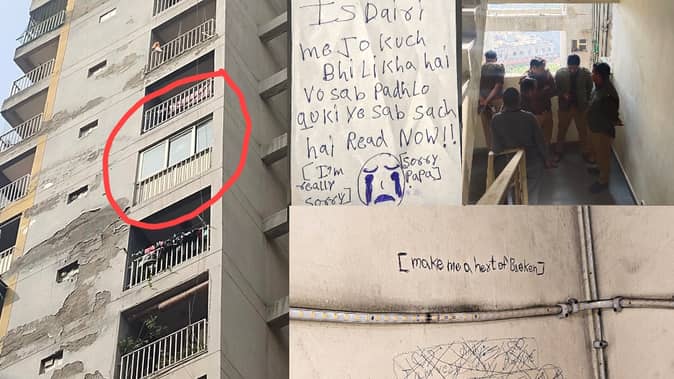 Is Dairi
me Jo kuch
Bhi Likha hai
vo sab Padhlo
quki ye sab sach
hai Read NOW!!
[I'm really sorry]
[Sorry Papa]
[make me a hert of Broken]